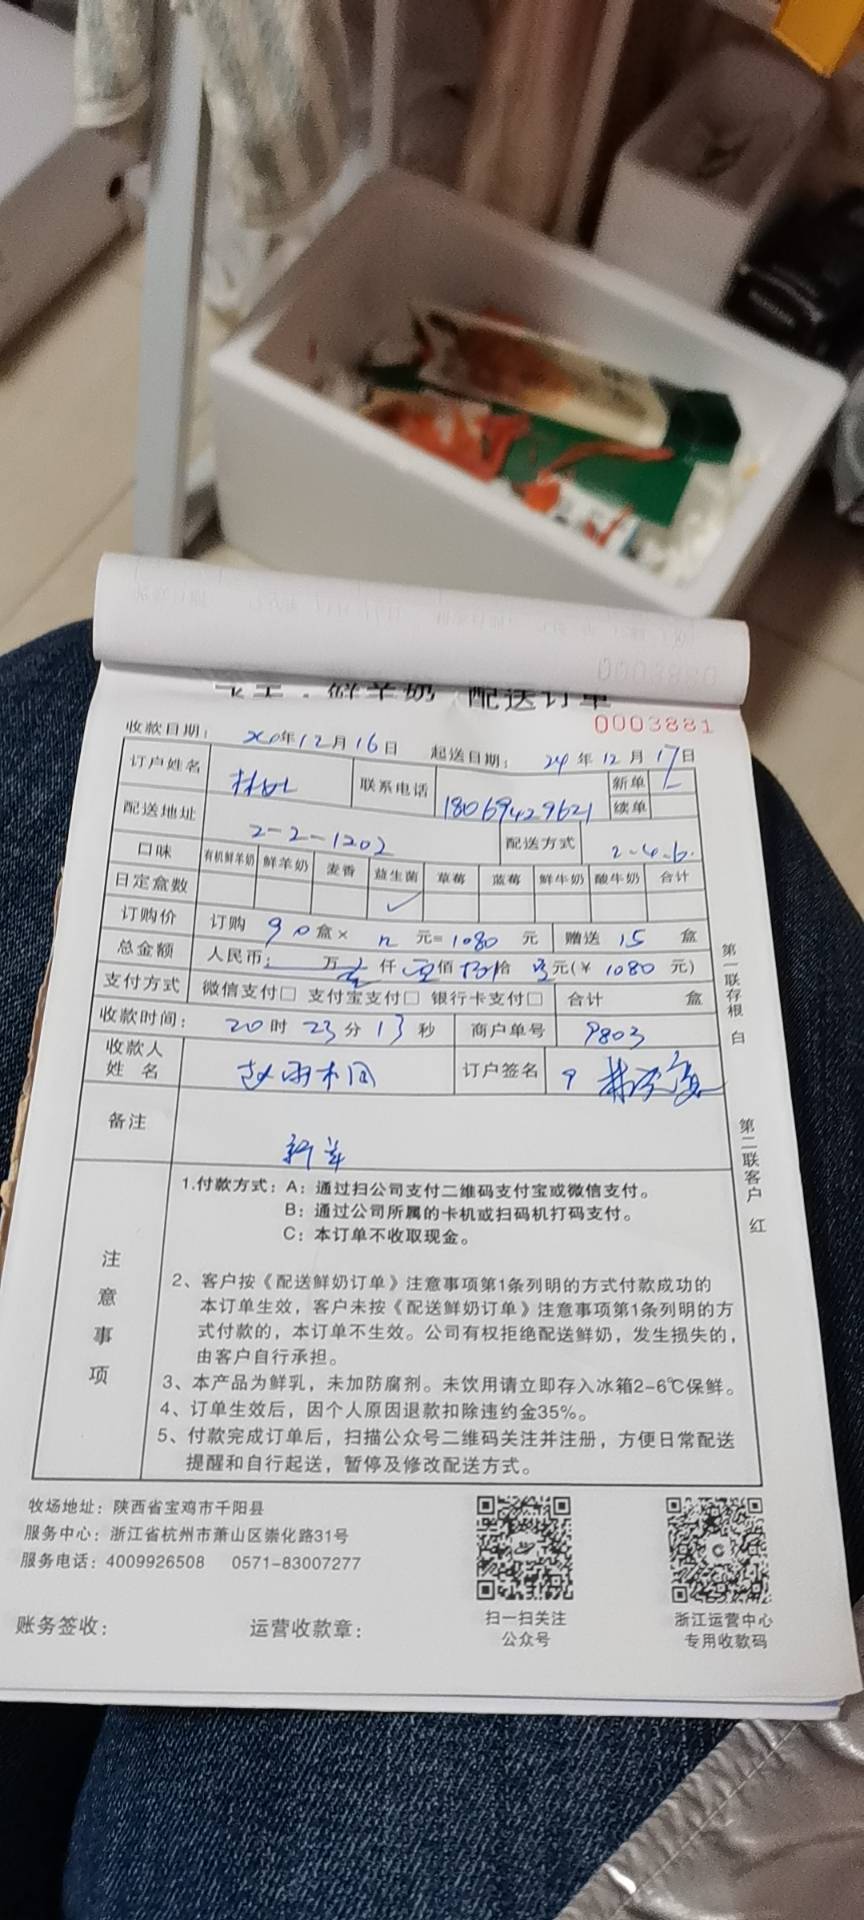 鲜羊奶 配送订单
0003880
0003881
收款日期: 年12月16日 起送日期: 24年12月17日
订户姓名 联系电话 18069429621 新单
续单
配送地址 2-2-1202 配送方式 2-4-6.
口味 有机鲜羊奶 鲜羊奶 麦香 益生菌 草莓 蓝莓 鲜牛奶 酸牛奶 合计
日定盒数 ✓
订购价 订购 90 盒× 12 元= 1080 元 赠送 15 盒
总金额 人民币: 万 仟 佰 拾 元(¥ 1080 元)
支付方式 微信支付□ 支付宝支付□ 银行卡支付□ 合计 盒
收款时间: 20时23分13秒 商户单号 9803
收款人姓名 订户签名
备注
新单
注意事项
1.付款方式: A: 通过扫公司支付二维码支付宝或微信支付。
B: 通过公司所属的卡机或扫码机打码支付。
C: 本订单不收取现金。
2、客户按《配送鲜奶订单》注意事项第1条列明的方式付款成功的
本订单生效，客户未按《配送鲜奶订单》注意事项第1条列明的方
式付款的，本订单不生效。公司有权拒绝配送鲜奶，发生损失的，
由客户自行承担。
3、本产品为鲜乳，未加防腐剂。未饮用请立即存入冰箱2-6℃保鲜。
4、订单生效后，因个人原因退款扣除违约金35%。
5、付款完成订单后，扫描公众号二维码关注并注册，方便日常配送
提醒和自行起送，暂停及修改配送方式。
第一联存根 白
第二联客户 红
牧场地址: 陕西省宝鸡市千阳县
服务中心: 浙江省杭州市萧山区崇化路31号
服务电话: 4009926508 0571-83007277
账务签收: 运营收款章:
扫一扫关注
公众号
浙江运营中心
专用收款码